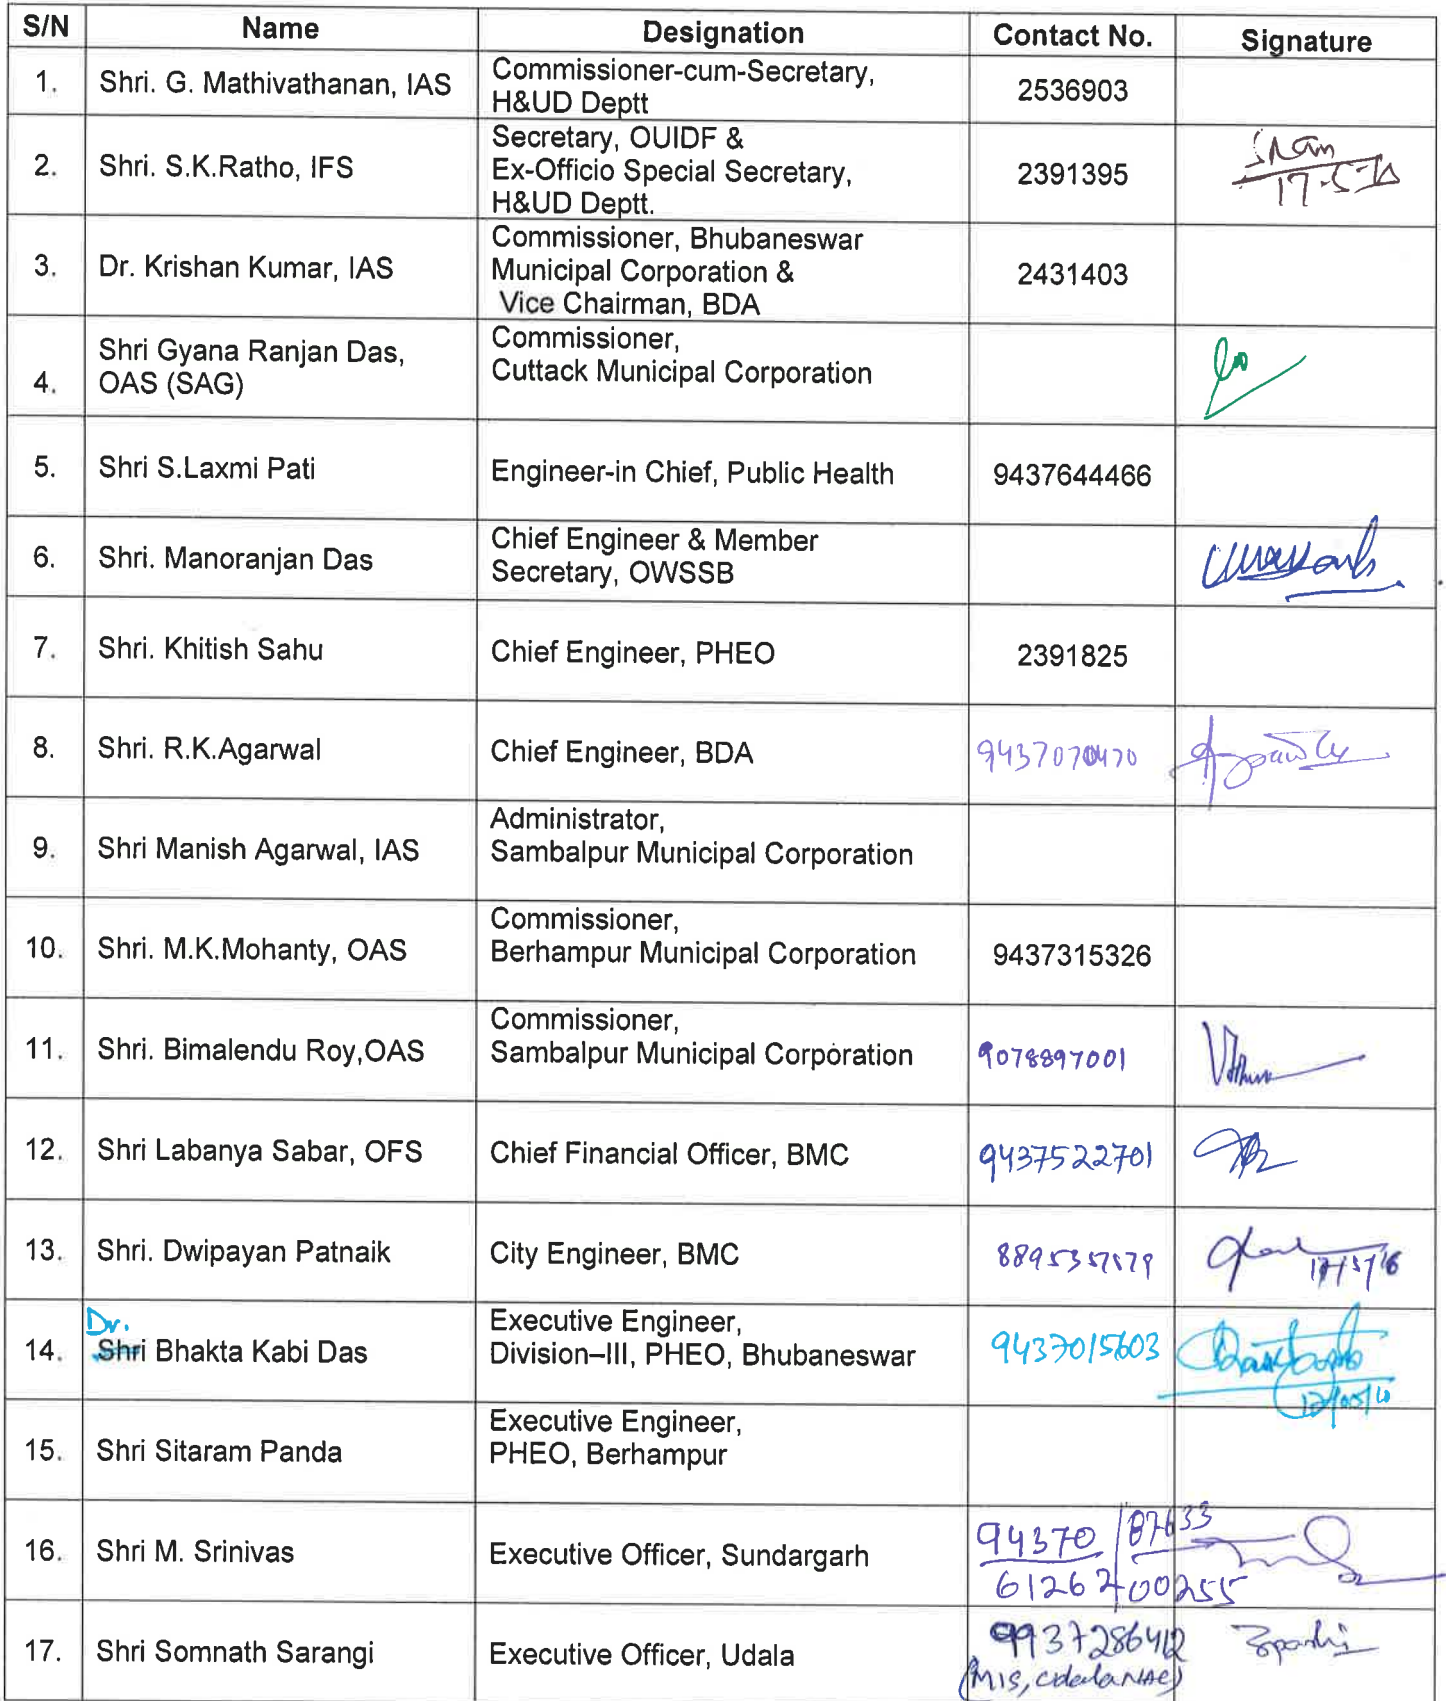 S/N Name Designation Contact No. Signature
1. Shri. G. Mathivathanan, IAS Commissioner-cum-Secretary, 2536903
H&UD Deptt
2. Shri. S.K.Ratho, IFS Secretary, OUIDF & 2391395
Ex-Officio Special Secretary,
H&UD Deptt.
17-5-16
3. Dr. Krishan Kumar, IAS Commissioner, Bhubaneswar 2431403
Municipal Corporation &
Vice Chairman, BDA
4. Shri Gyana Ranjan Das, Commissioner,
OAS (SAG) Cuttack Municipal Corporation
5. Shri S.Laxmi Pati Engineer-in Chief, Public Health 9437644466
6. Shri. Manoranjan Das Chief Engineer & Member
Secretary, OWSSB
7. Shri. Khitish Sahu Chief Engineer, PHEO 2391825
8. Shri. R.K.Agarwal Chief Engineer, BDA 9437070470
9. Shri Manish Agarwal, IAS Administrator,
Sambalpur Municipal Corporation
10. Shri. M.K.Mohanty, OAS Commissioner, 9437315326
Berhampur Municipal Corporation
11. Shri. Bimalendu Roy,OAS Commissioner, 9078897001
Sambalpur Municipal Corporation
12. Shri Labanya Sabar, OFS Chief Financial Officer, BMC 9437522701
13. Shri. Dwipayan Patnaik City Engineer, BMC
17/5/16
Dr.
14. Shri Bhakta Kabi Das Executive Engineer, 9437015603
Division–III, PHEO, Bhubaneswar
15. Shri Sitaram Panda Executive Engineer,
PHEO, Berhampur
16. Shri M. Srinivas Executive Officer, Sundargarh 94370 / 87633
61262 00255
17. Shri Somnath Sarangi Executive Officer, Udala 9937286412
(MIS, Udala NAC)